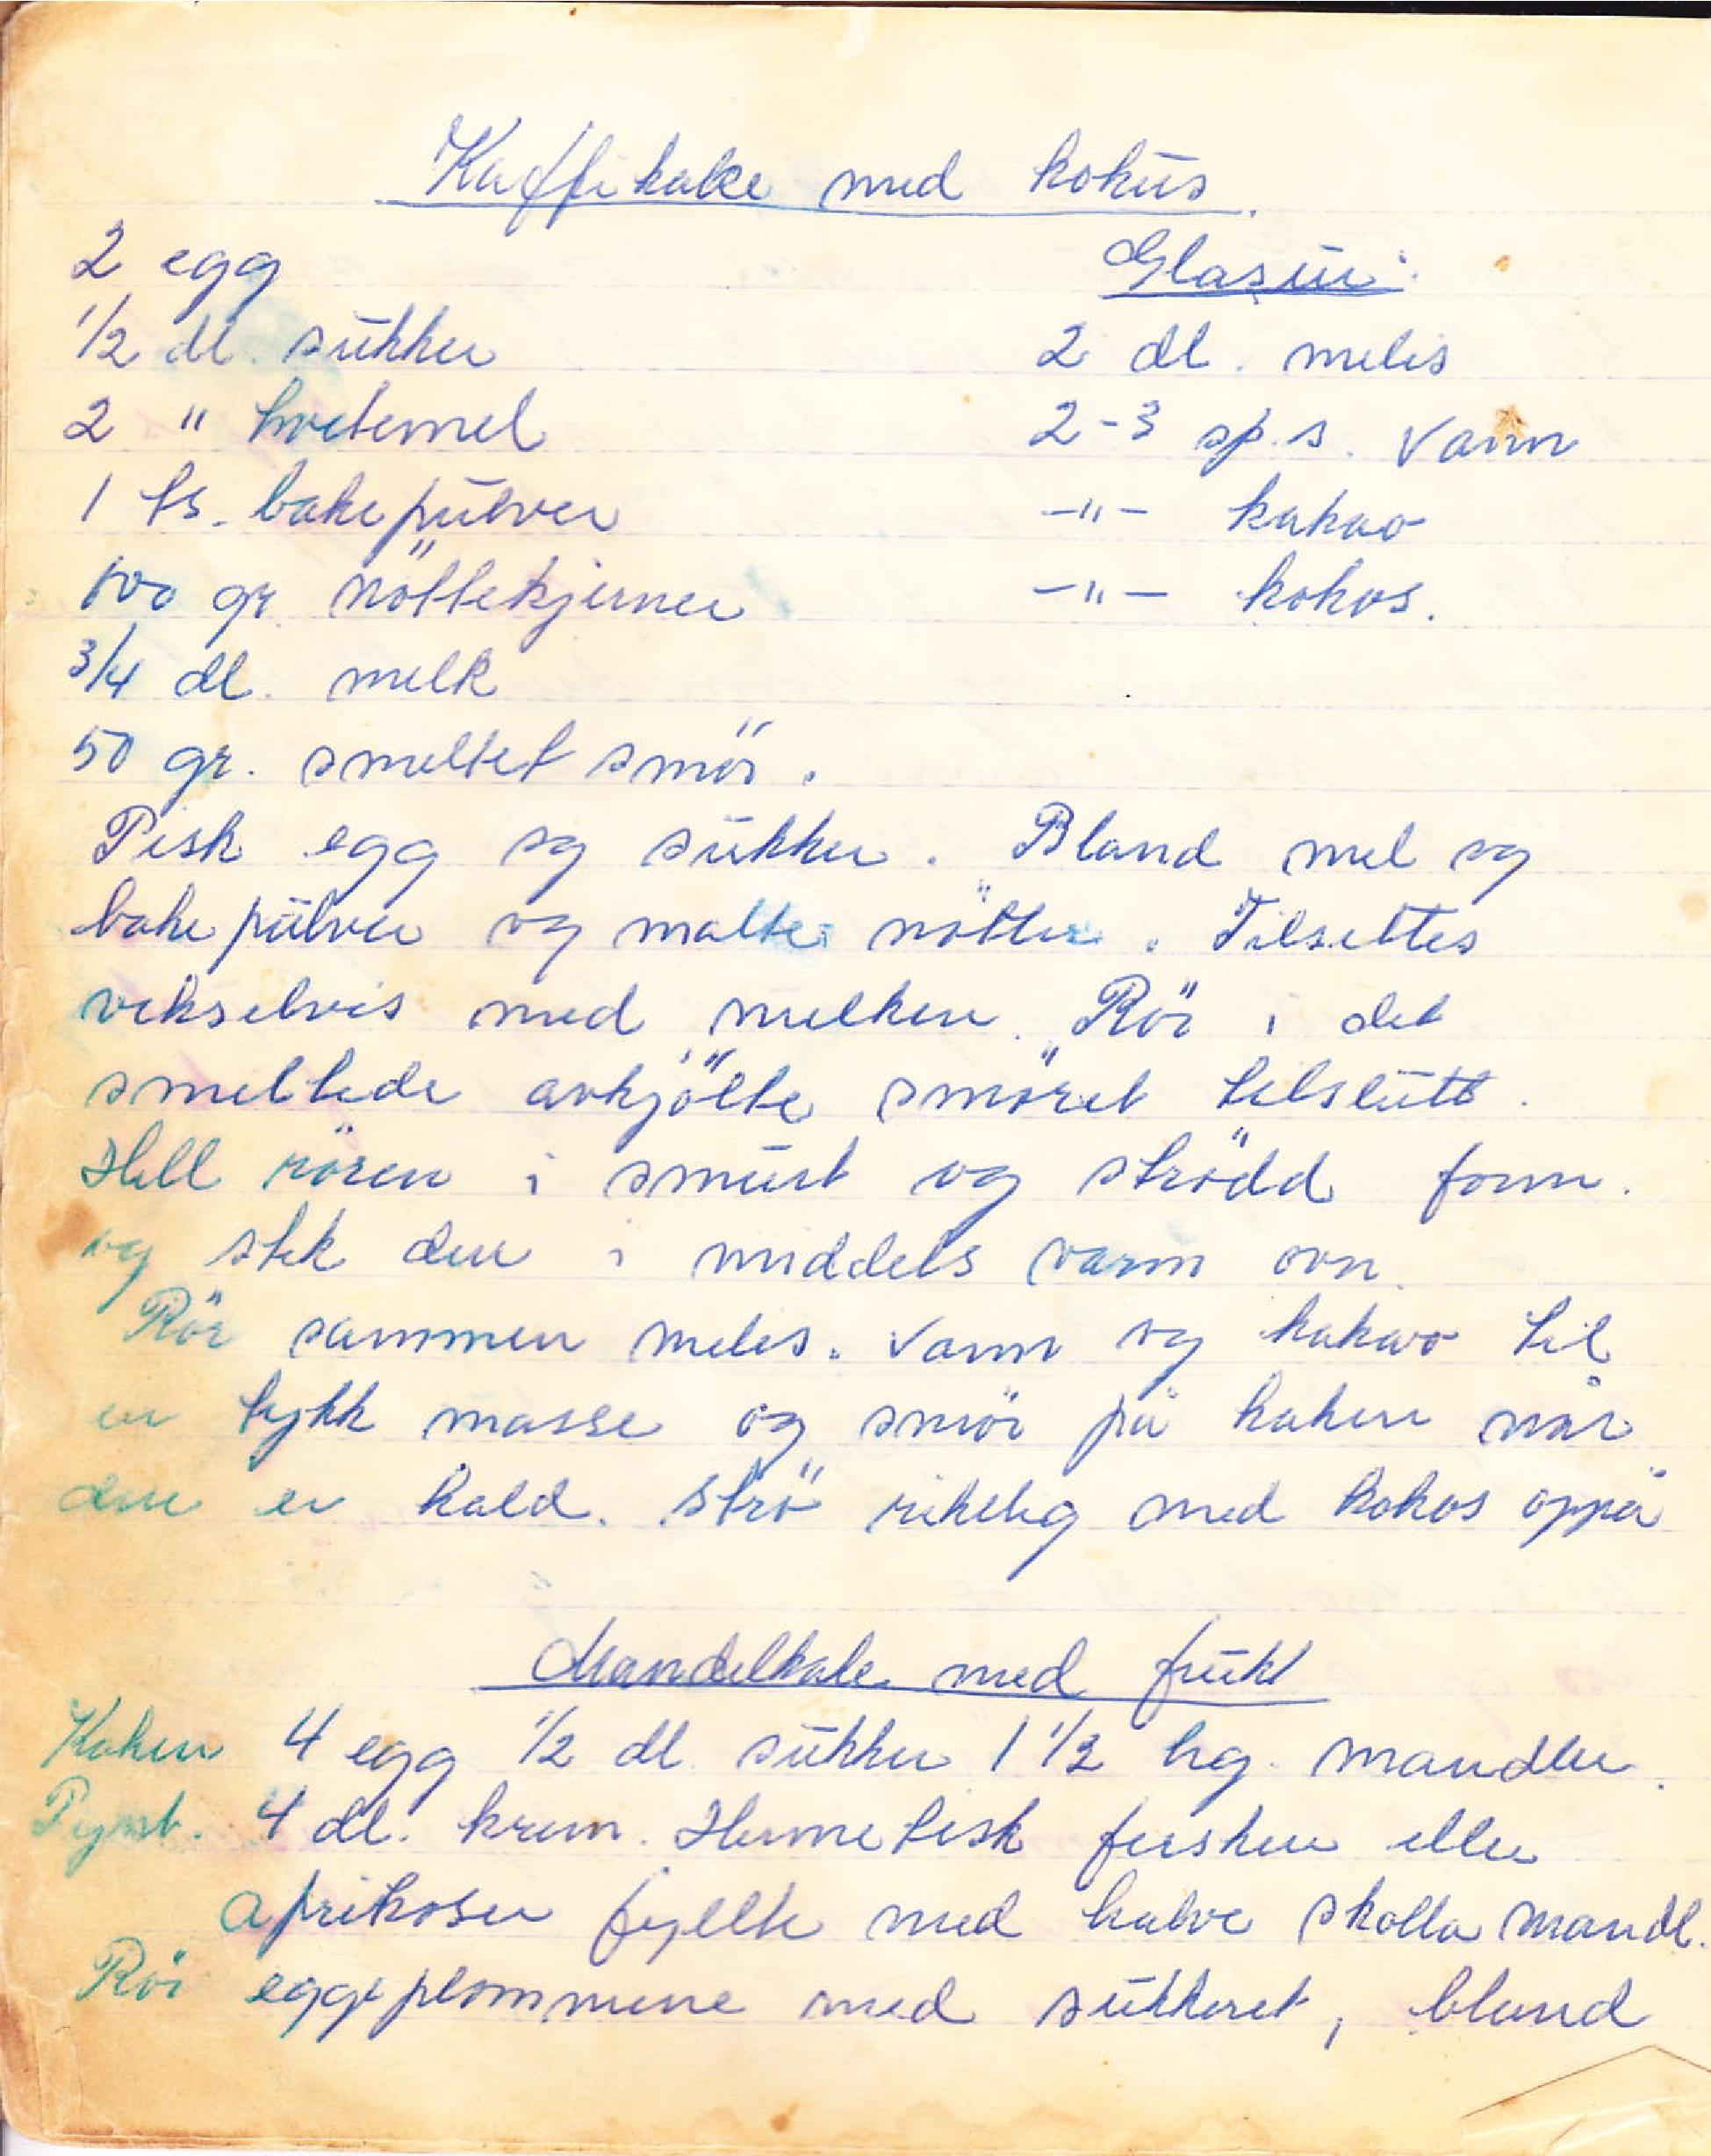 Kaffikake med kokus.
2 egg
1/2 dl. sukker
2 " hvetemel
1 ts. bakepulver
100 gr. nöttekjerner
3/4 dl. melk
50 gr. smeltet smör.
Glasur:
2 dl. melis
2-3 sp.s. vann
-"- kakao
-"- kokos.
Pisk egg og sukker. Bland mel og
bakepulver og malte nötter. Tilsettes
vekselvis med melken. Rör i det
smeltede avkjölte smöret tilslutt.
Hell rören i smurt og strödd form.
og stek den i middels varm ovn.
Rör sammen meles. vann og kakao til
en tykk masse og smör på kaken når
den er kald. Strö rikelig med kokos oppå
Mandelkake med frukt
Kaken 4 egg 1/2 dl. sukker 1 1/2 hg. mandler.
Pynt. 4 dl. krem. Hermetisk fersken eller
aprikoser fyllte med halve skolla mandl.
Rör eggeplommene med sukkeret, bland